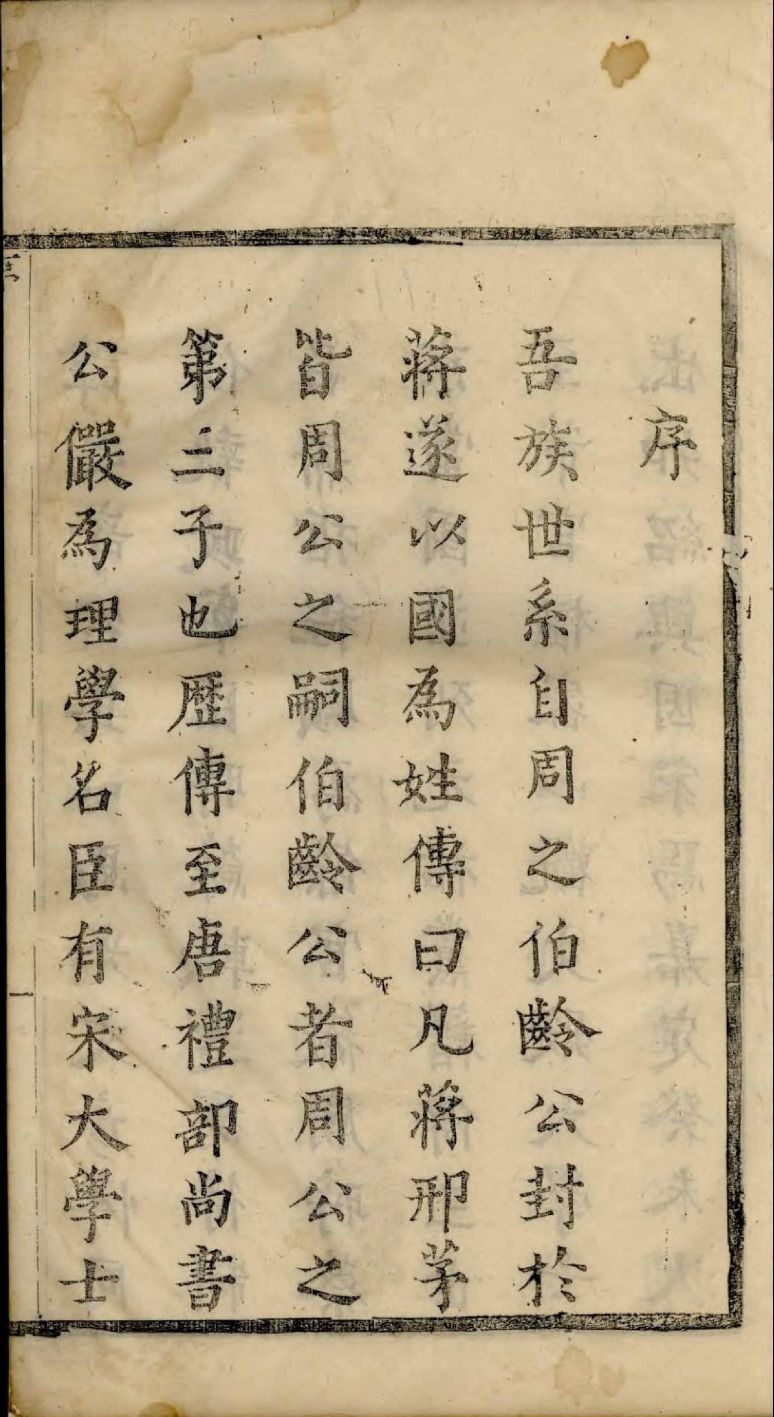 序
吾族世系自周之伯齡公封於
蔣遂以國為姓傳曰凡蔣邢茅
皆周公之嗣伯齡公者周公之
第三子也歴傳至唐禮部尚書
公儼為理學名臣有宋大學士